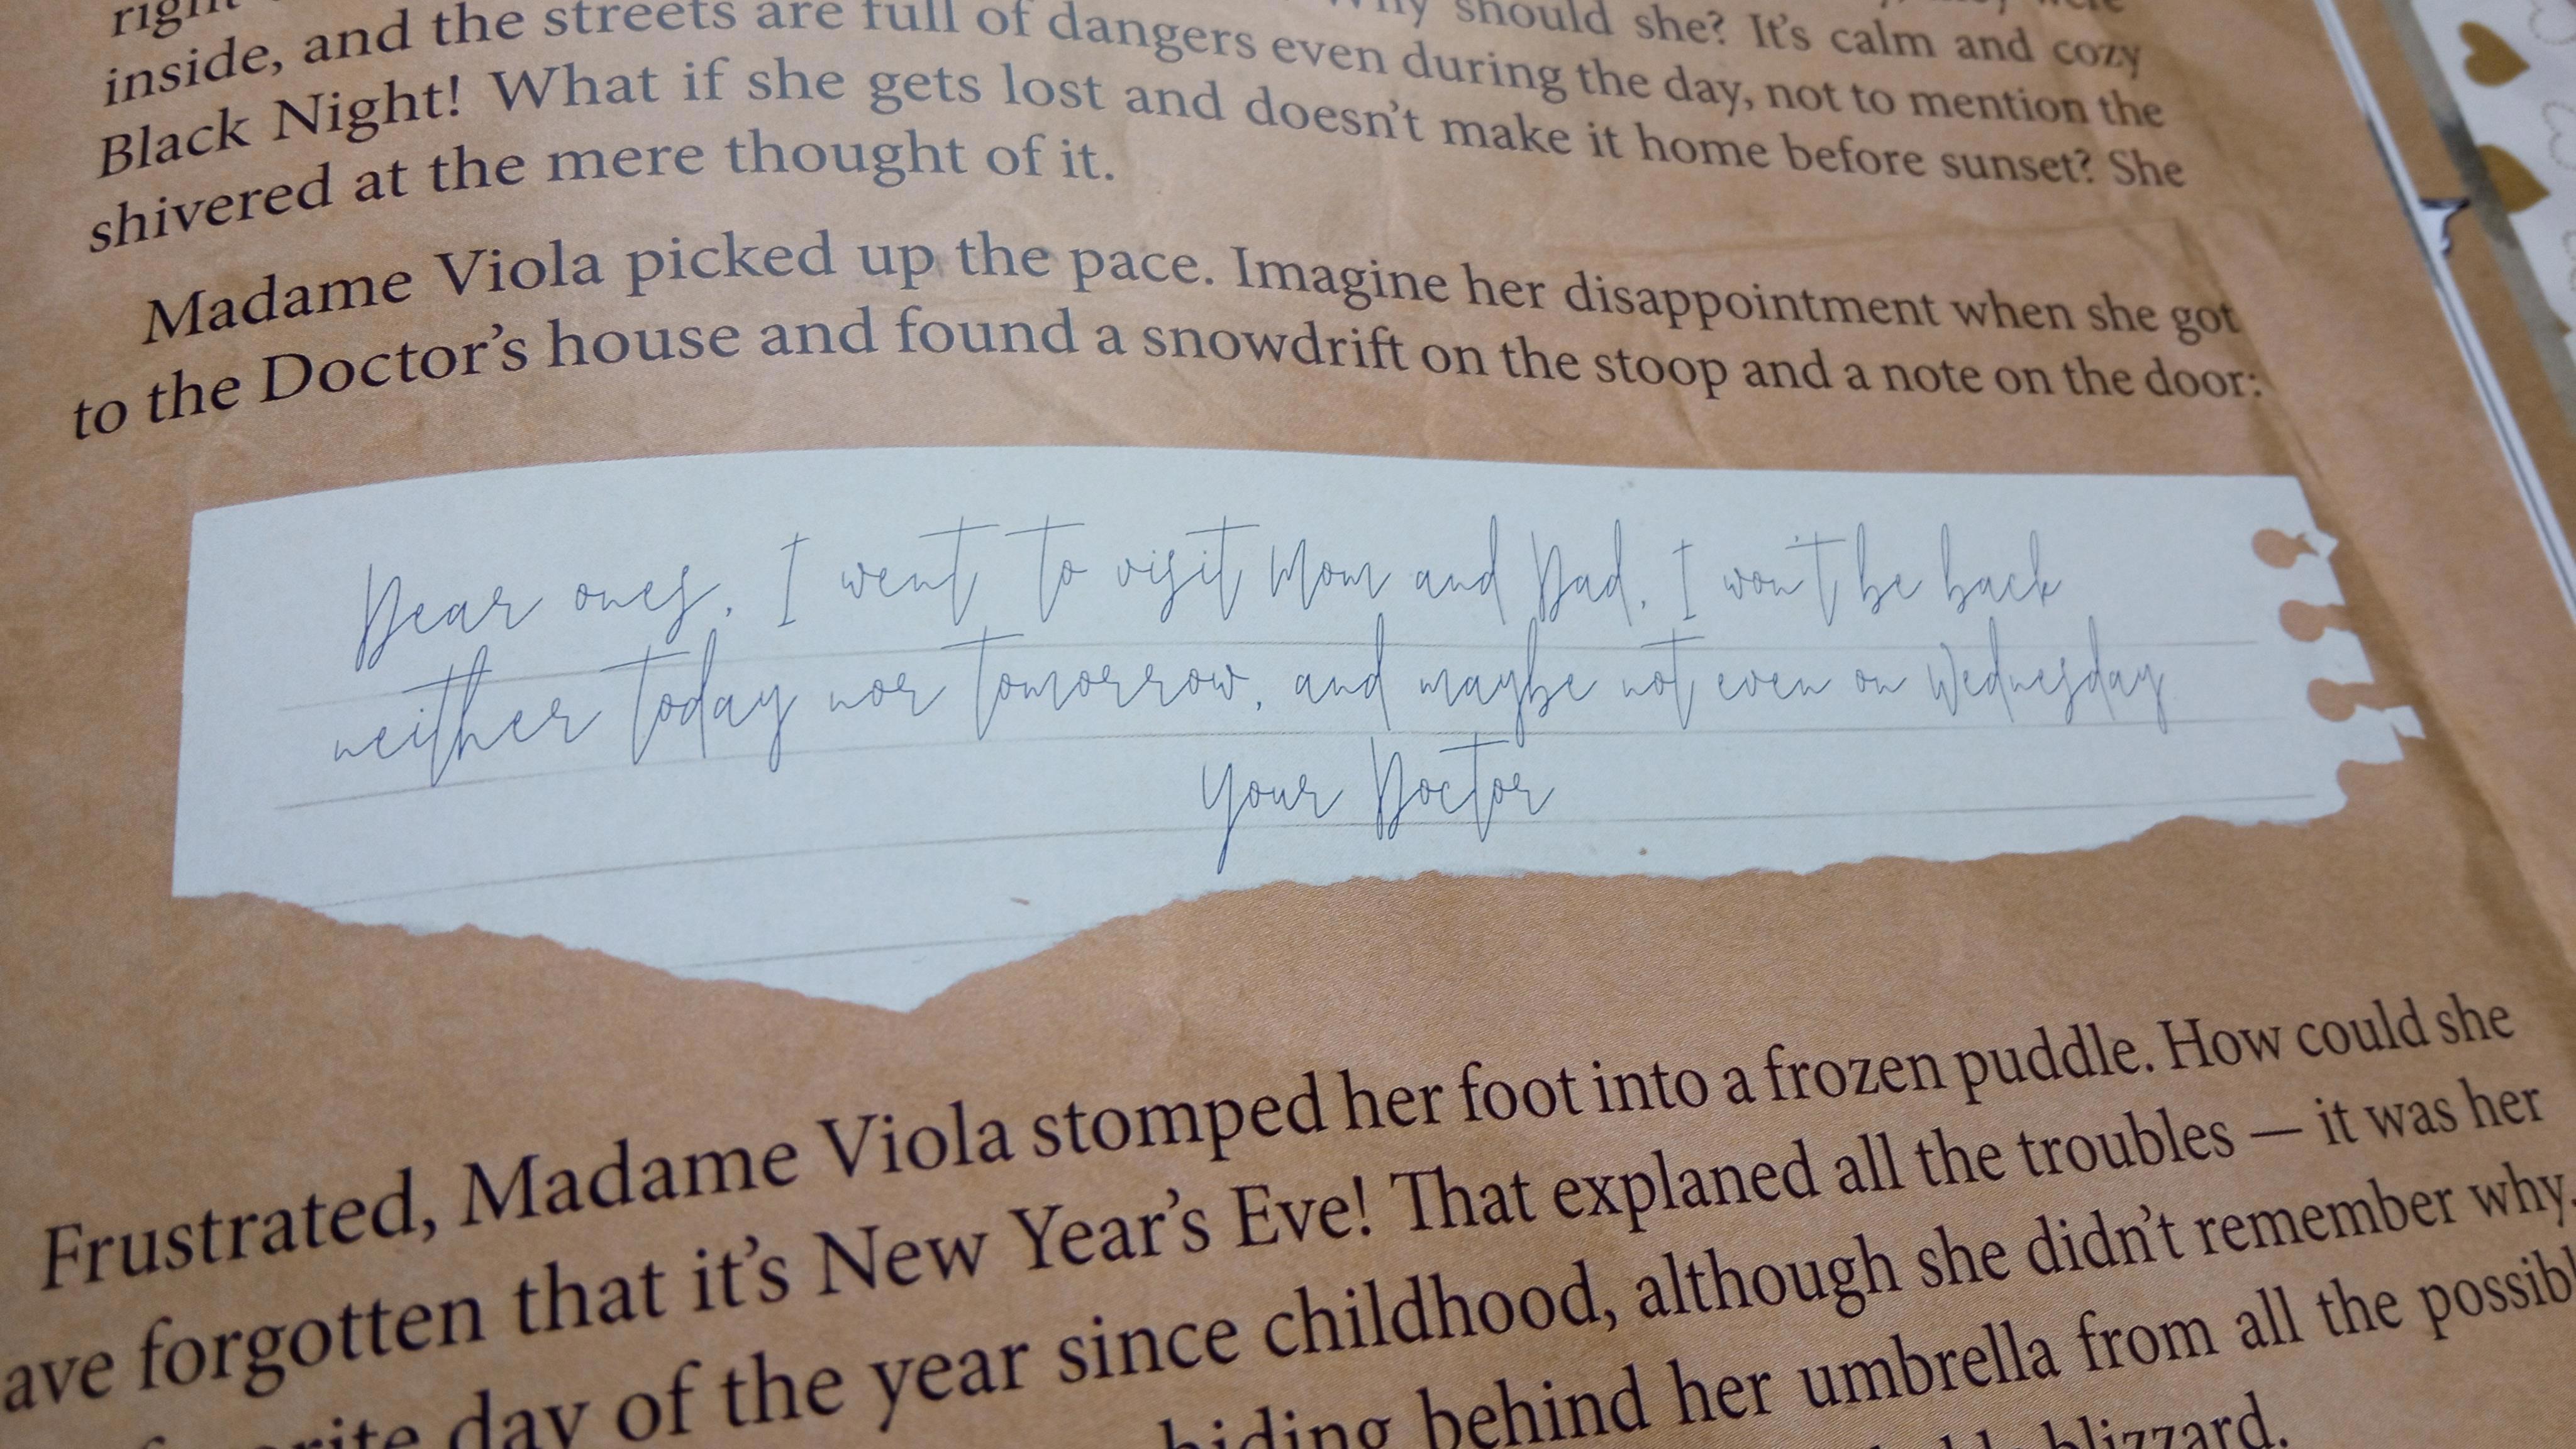 right
Why should she? It's calm and cozy
inside, and the streets are full of dangers even during the day, not to mention the
Black Night! What if she gets lost and doesn't make it home before sunset? She
shivered at the mere thought of it.
Madame Viola picked up the pace. Imagine her disappointment when she got
to the Doctor's house and found a snowdrift on the stoop and a note on the door:
Dear ones, I went to visit Mom and Dad. I won't be back
neither today nor tomorrow, and maybe not even on Wednesday
Your Doctor
Frustrated, Madame Viola stomped her foot into a frozen puddle. How could she
ave forgotten that it's New Year's Eve! That explaned all the troubles — it was her
rite day of the year since childhood, although she didn't remember why.
hiding behind her umbrella from all the possibl
blizzard.